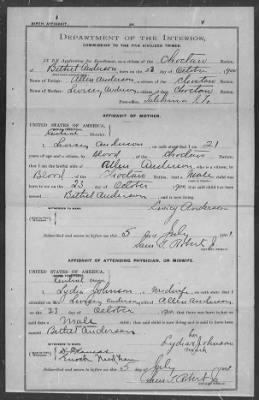 BIRTH AFFIDAVIT.
DEPARTMENT OF THE INTERIOR,
COMMISSION TO THE FIVE CIVILIZED TRIBES.
IN RE Application for Enrollment, as a citizen of the Choctaw Nation,
of Bethel Anderson, born on the 23 day of October, 1900
Name of Father: Allen Anderson a citizen of the Choctaw Nation.
Name of Mother: Anderson a citizen of the Choctaw Nation.
Post-office, Talihina I.T.
AFFIDAVIT OF MOTHER.
UNITED STATES OF AMERICA,
Central District.
I, Anderson, on oath state that I am 21
years of age and a citizen, by Blood of the Choctaw Nation;
that I am the lawful wife of Allen Anderson, who is a citizen, by
Blood of the Choctaw Nation; that a Male child was
born to me on the 23 day of October 1900; that said child has been named
Bethel Anderson, and is now living.
Anderson
Subscribed and sworn to before me this 5 day of July 1901
AFFIDAVIT OF ATTENDING PHYSICIAN, OR MIDWIFE.
UNITED STATES OF AMERICA,
Central
I, Lydia Johnson, a midwife, on oath state that I
attended on Anderson, wife of Allen Anderson
on the 23 day of October, 1900; that there was born to her on said date a
Male child; that said child is now living and is said to have been
named Bethel Anderson
her
Lydia x Johnson
mark
WITNESSES TO MARK:
Needham
Subscribed and sworn to before me this 5 day of July 1901